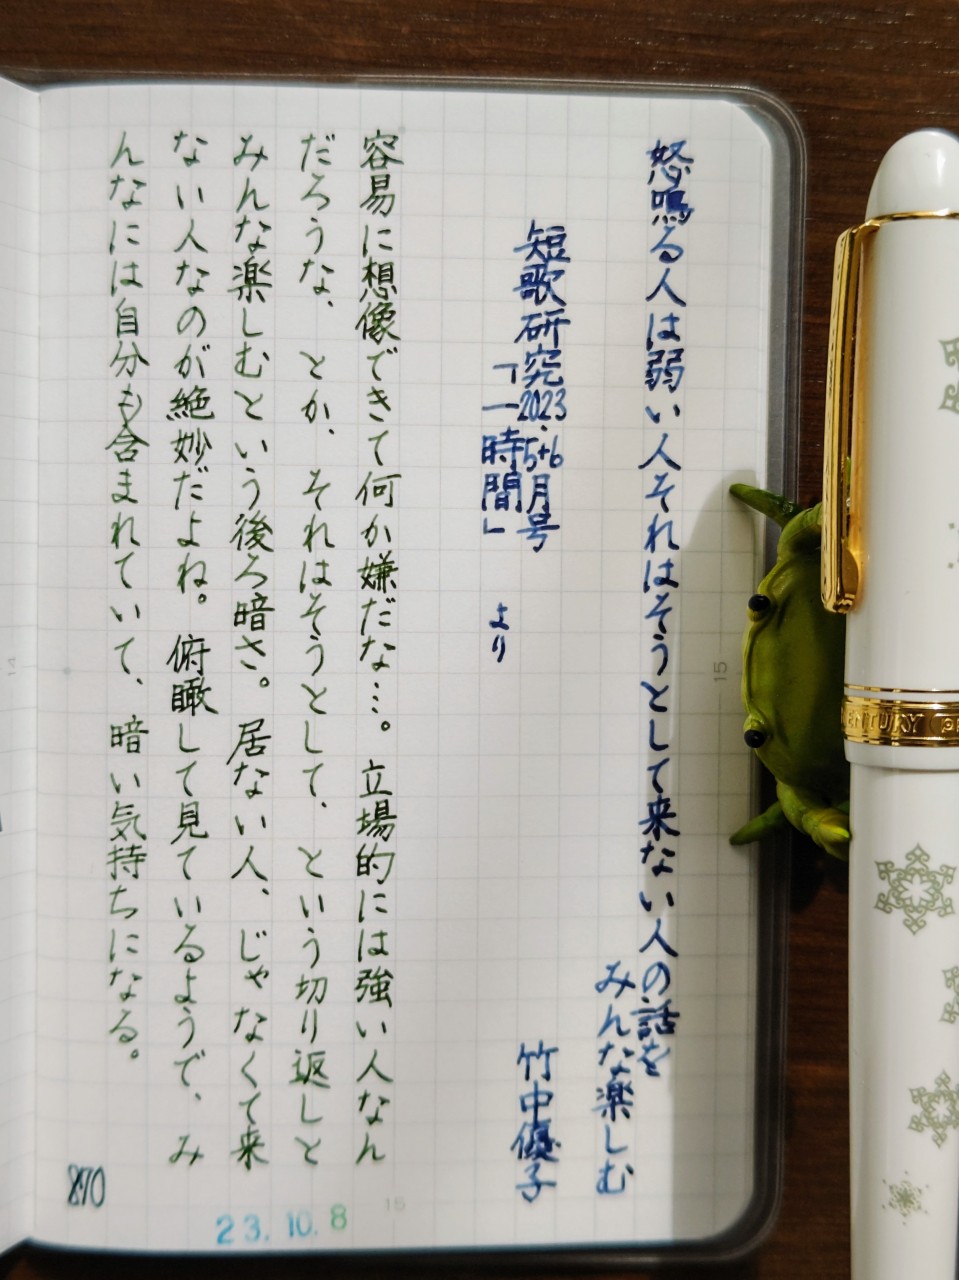 怒鳴る人は弱い人それはそうとして来ない人の話を
みんな楽しむ
竹中優子
短歌研究2023.5+6月号
「一時間」より
容易に想像できて何か嫌だな…。立場的には強い人なん
だろうな、とか、それはそうとして、という切り返しと
みんな楽しむという後ろ暗さ。居ない人、じゃなくて来
ない人なのが絶妙だよね。俯瞰して見ているようで、み
んなには自分も含まれていて、暗い気持ちになる。
870
23.10.8
15
15
14
CENTURY